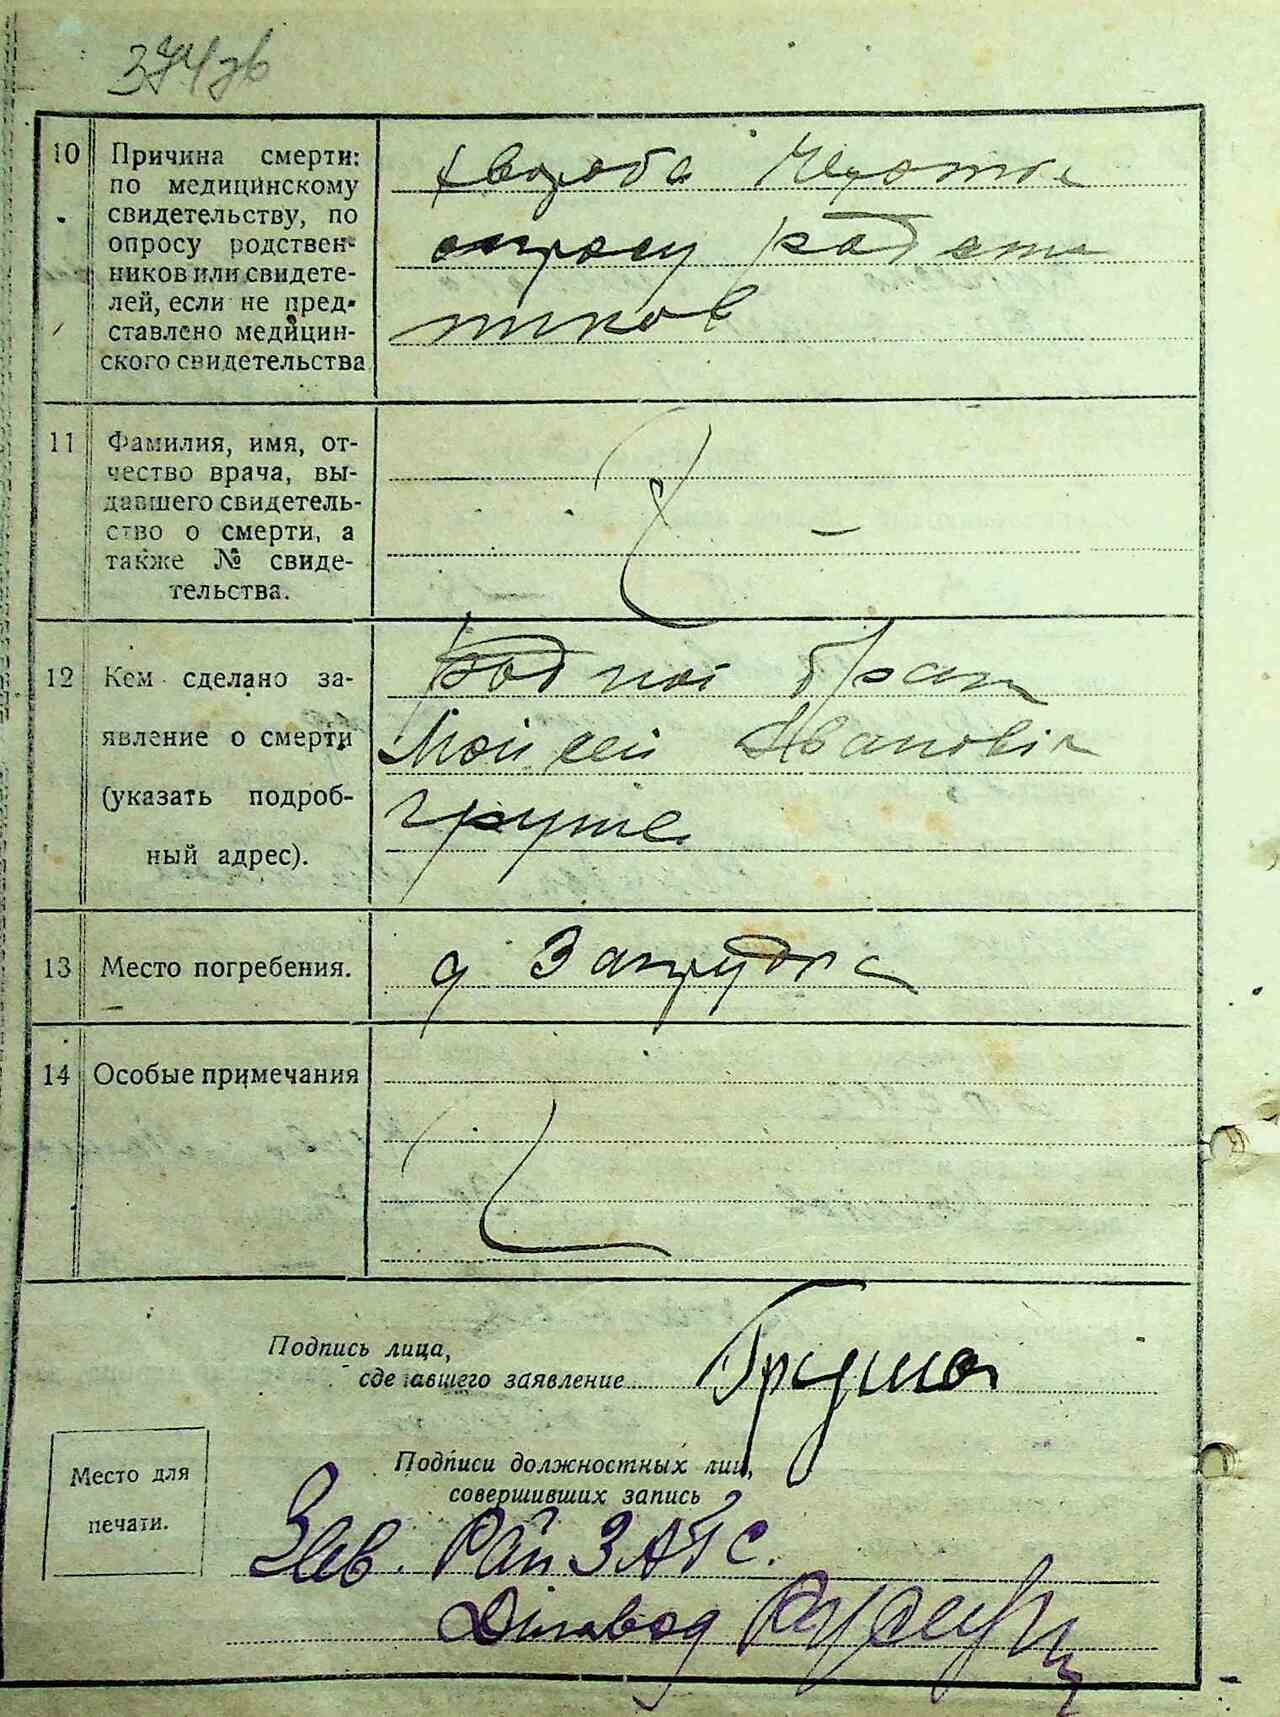 10
Причина смерти:
по медицинскому
свидетельству, по
опросу родствен-
ников или свидете-
лей, если не пред-
ставлено медицин-
ского свидетельства
хвороба
опросу родств
ников
11
Фамилия, имя, от-
чество врача, вы-
давшего свидетель-
ство о смерти, а
также № свиде-
тельства.
—
12
Кем сделано за-
явление о смерти
(указать подроб-
ный адрес).
Родной брат
Мойсей Иванович
Груша
13
Место погребения.
д Запрудка
14
Особые примечания
Подпись лица,
сделавшего заявление
Груша
Место для
печати.
Подписи должностных лиц,
совершивших запись
Зав. Рай ЗАГС.
Діловод